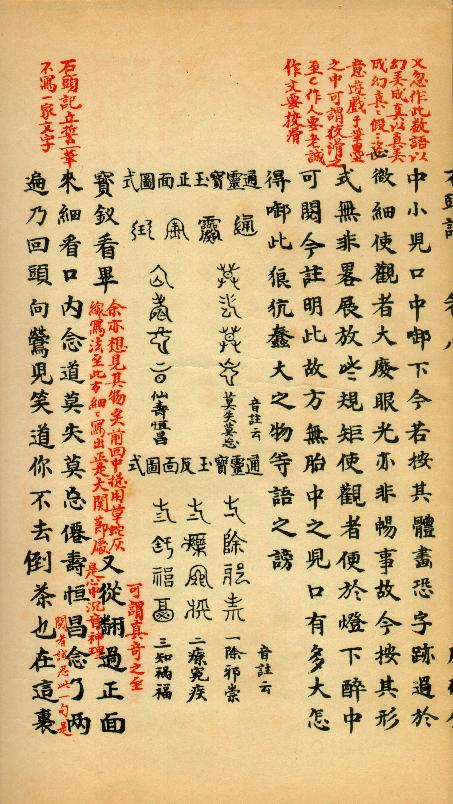 又忽作此数語以
幻弄成真以真弄
成幻真真假假恣
意遊戲于筆墨
之中可謂狡滑之
至作人要老誠
作文要狡滑
石頭記立誓一筆
不寫一家文字
中小兒口中啣下今若按其體畫恐字跡過於
微細使觀者大廢眼光亦非暢事故今按其形
式無非畧展放些規矩使觀者便於燈下醉中
可閱今註明此故方無胎中之兒口有多大怎
得啣此狼犺蠢大之物等語之謗
通靈寶玉正面圖式
通靈寶玉
音註云
莫失莫忘
仙壽恒昌
通靈寶玉反面圖式
音註云
一除邪祟
二療冤疾
三知禍福
寶釵看畢
余亦想見其物矣前回中總用草蛇灰
線寫法至此方細細寫出正是大關節處
可謂真奇之至
又從翻過正面
來細看口內念道莫失莫忘僊壽恒昌念了兩
是心中沉音神理
遍乃回頭向鶯兒笑道你不去倒茶也在這裏